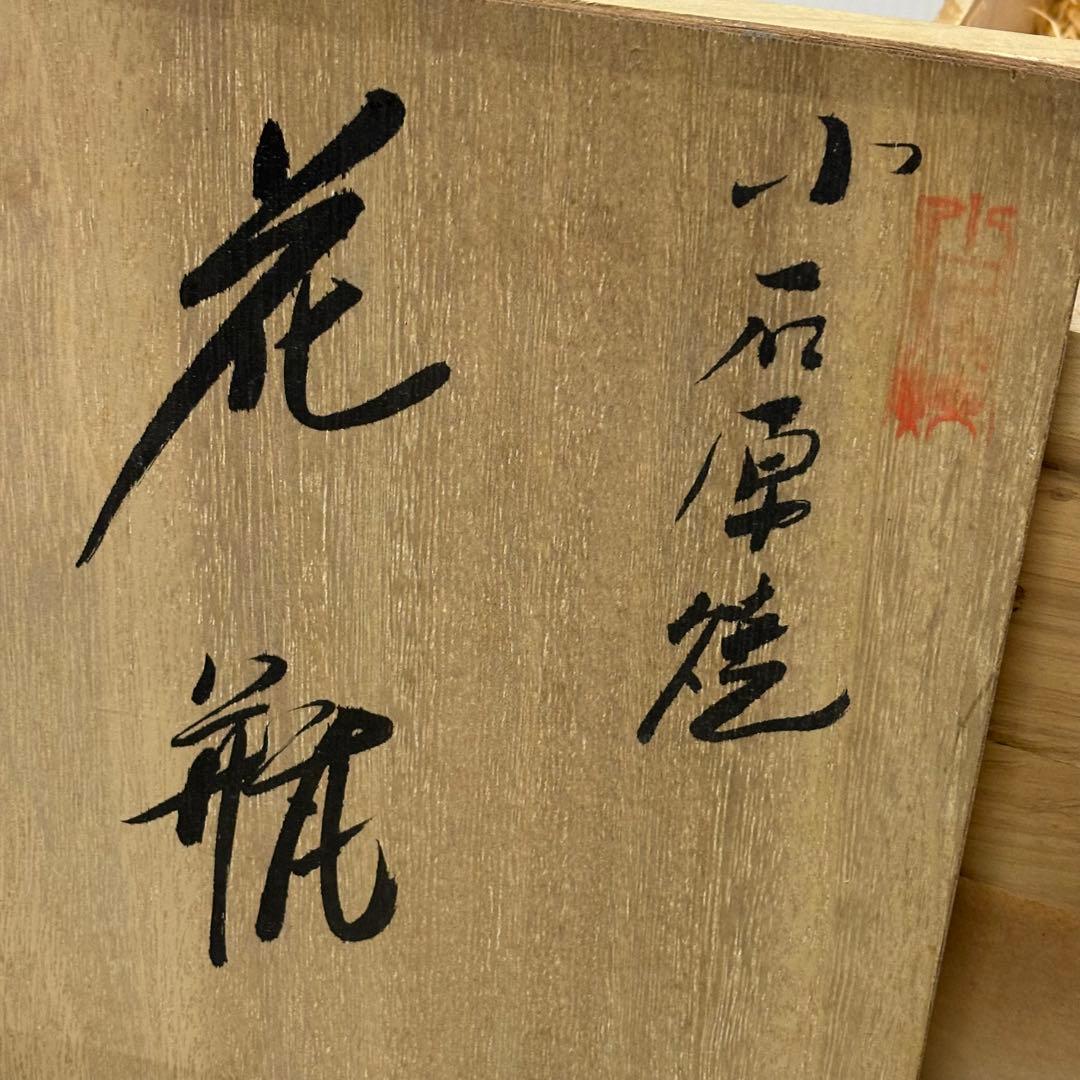 小石原焼
花瓶